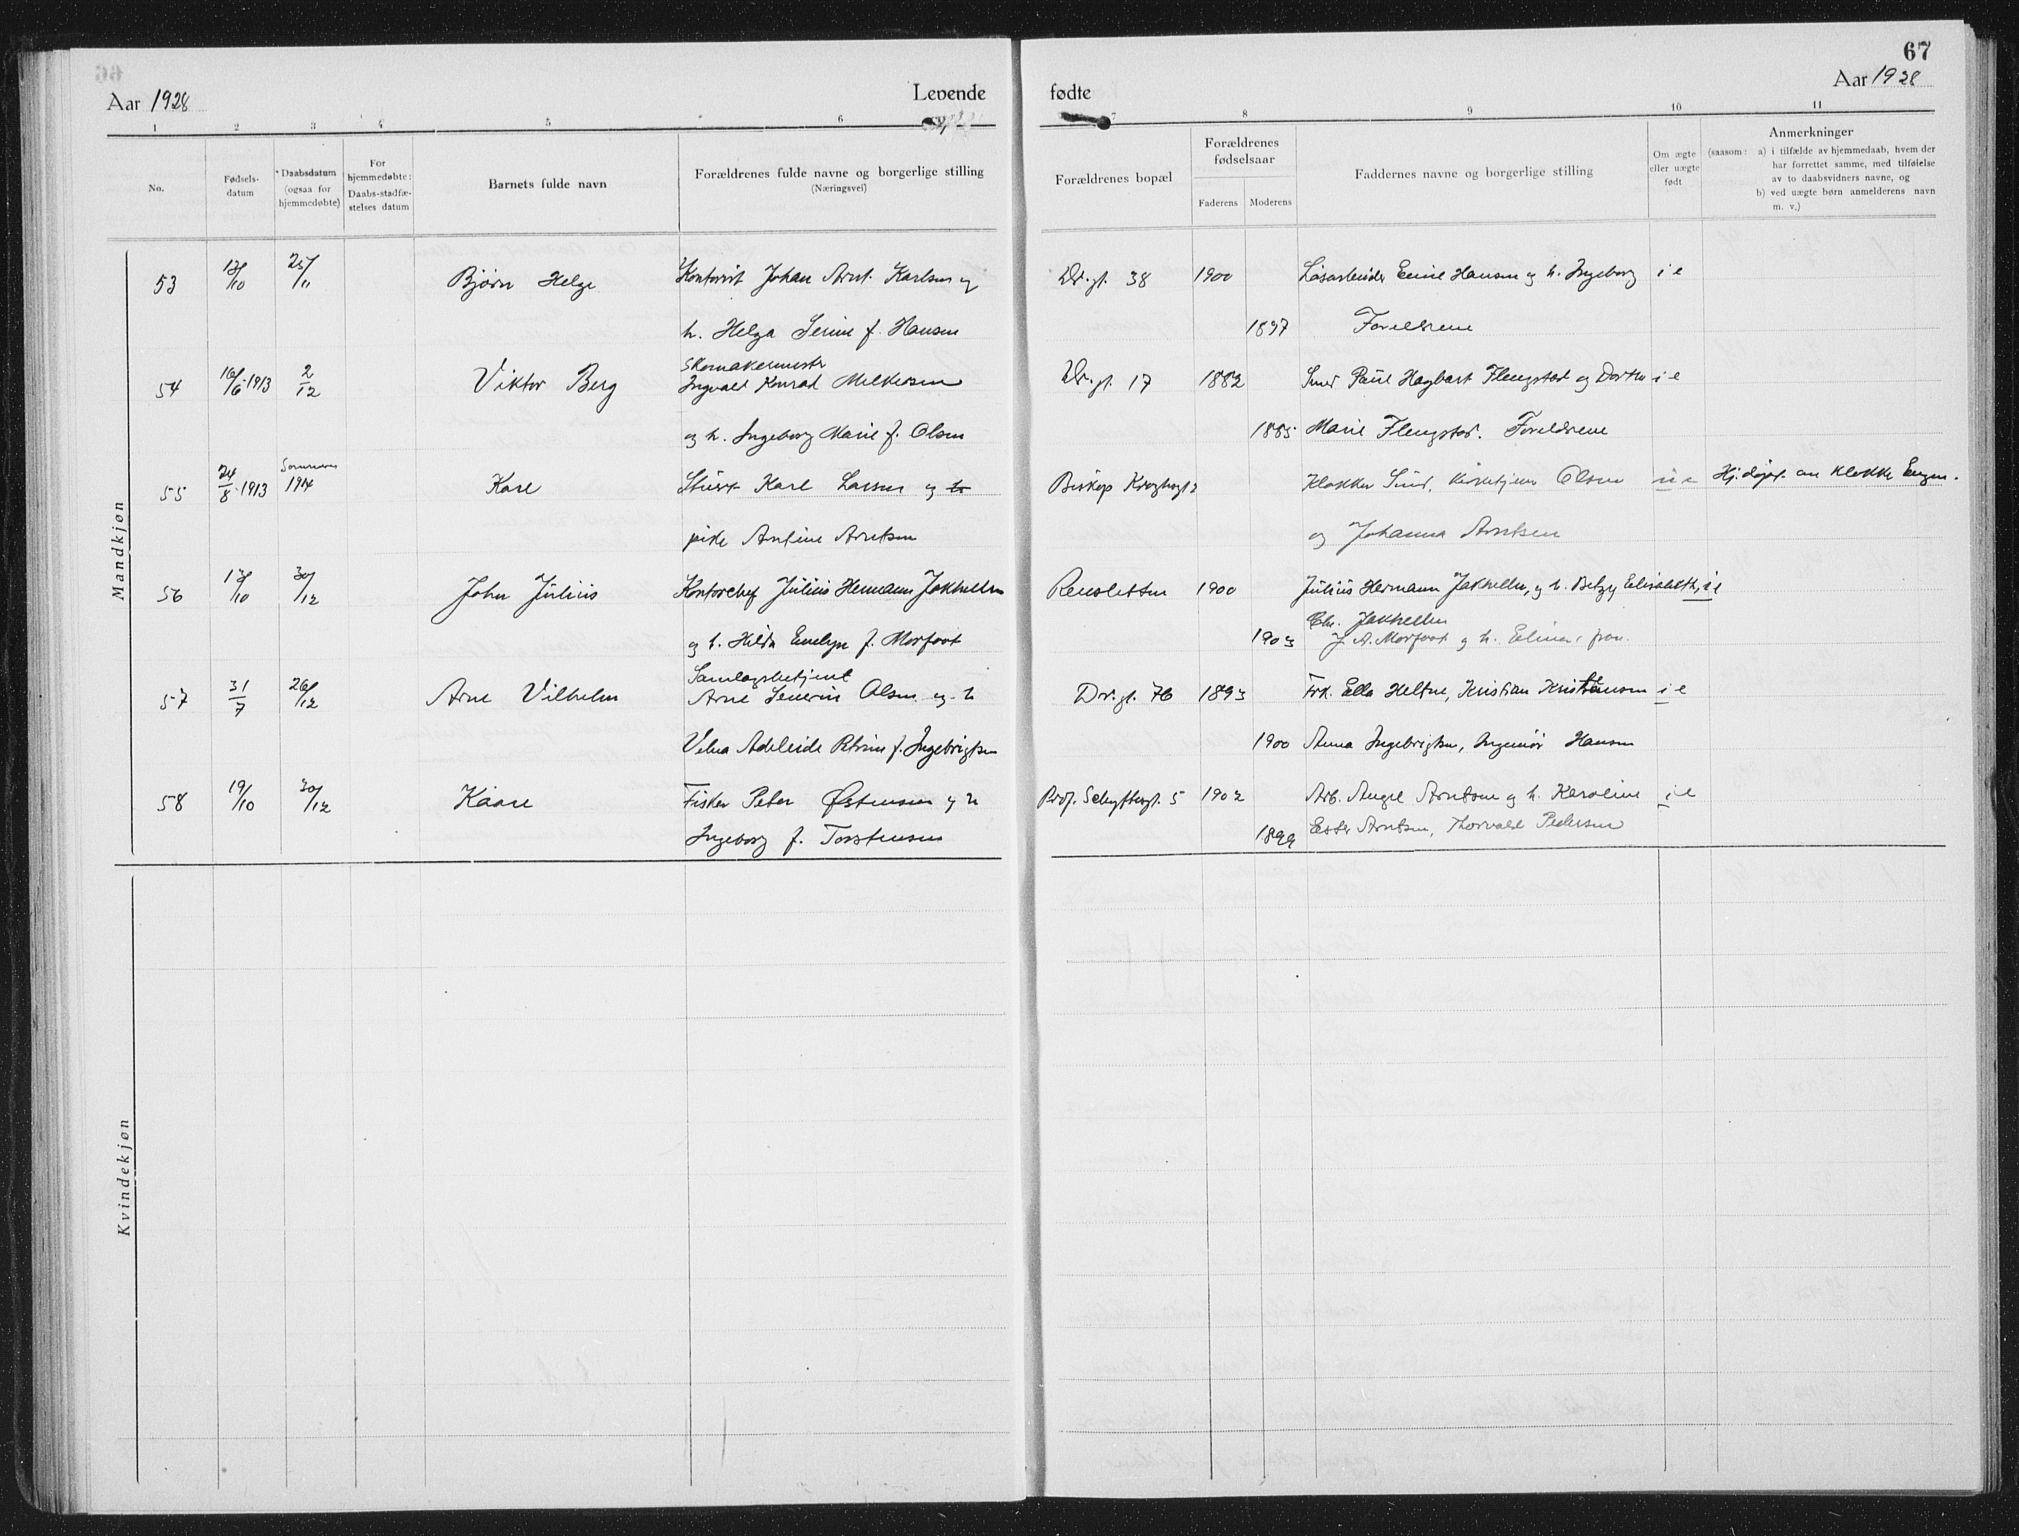 67
Aar 1928
Levende
fødte
Aar 1928
1 2 3 4 5 6
7 8 9 10 11
No.
Fødsels-
datum
Daabsdatum
(ogsaa for
hjemmedøbte)
For
hjemmedøbte:
Daabs-stadfæ-
stelses datum
Barnets fulde navn
Forældrenes fulde navne og borgerlige stilling
(Næringsvei)
Forældrenes bopæl
Forældrenes
fødselsaar
Faderens
Moderens
Faddernes navne og borgerlige stilling
Om ægte
eller uægte
født
Anmerkninger
(saasom: a) i tilfælde av hjemmedaab, hvem der
har forrettet samme, med tilføielse
av to daabsvidners navne, og
b) ved uægte børn anmelderens navn
m. v.)
Mandkjøn
53 13/10 25/11 Bjørn Helge Kontorist Johan Arnt Karlsen og
h. Helga Serine f. Hansen
Dr.gt. 38 1900 Løsarbeider Emil Hansen og h. Ingeborg i e
1897 Foreldrene
54 16/6 1913 2/12 Viktor Berg Skomakermester
Ingvald Konrad Melkersen
og h. Ingeborg Marie f. Olsen
Dr.gt. 17 1882 Smed Paul Hagbart Flengstad og Dorthe i e
1885 Marie Flengstad. Foreldrene
55 24/8 1913 Sommeren
1914 Kare Stuert Karl Larsen og h
pike Antine Arntsen
Biskop Kroghsgt 2 Klokker Smed, kirketjener Olsen u e Hj.døpt. av klokker
og Johanna Arntsen
56 13/10 30/12 John Julius Kontorchef Julius Hermann Jakhelln
og h. Hilda Evelyn f. Morfoot
Rensletten 1900 Julius Hermann Jakhelln, og h. Betzy Elisabeth, i e
Chr. Jakhelln
1903 J. A. Morfoot og h. Elinor,
57 31/7 26/12 Arne Vilhelm Samlagsbetjent
Arne Severin Olsen og h
Velua Adeleide Petrine f. Ingebrigtsen
Dr.gt. 76 1893 Frk. Ella Heltne, Kristian Kristensen i e
1900 Anna Ingebrigtsen, Ingeniør Hansen
58 19/10 30/12 Kaare Fisker Peter Østensen og h
Ingeborg f. Torstensen
Prof. Schyttesgt. 5 1902 Arb. Angel Arntsen og h. Karoline i e
1899 Ester Arntsen, Thorvald Pedersen
Kvindekjøn